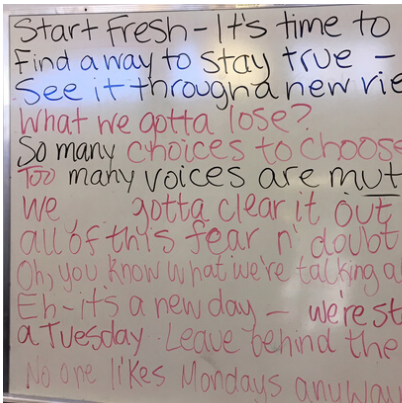 Start Fresh - It's time to
Find a way to stay true -
See it through a new vie
What we gotta lose?
So many choices to choose
Too many voices are mut
We gotta clear it out
all of this fear n' doubt
Oh, you know what we're talking a
Eh - it's a new day - we're st
a Tuesday. Leave behind the
No one likes Mondays anyway